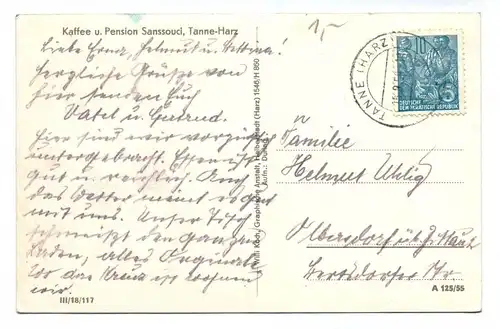 Kaffee u. Pension Sanssouci, Tanne-Harz
1,-
Liebe Erna, Helmut u. Bettina!
Herzliche Grüße von
hier senden Euch
Vati u. Gertrud.
Hier sind wir vorzüglich
untergebracht. Essen ist
gut u. reichlich. Auch
das Wetter meint es gut
mit uns. Unser Tisch
schmeißt den ganzen
Laden, alles Originale
wo das Kreuz ist wohnen
wir.
III/18/117
Willi Koch, Graphische Anstalt, Halberstadt (Harz) 1546/H 850
TANNE (HARZ)
10
5
DEUTSCHE
DEMOKRATISCHE REPUBLIK
Familie
Helmut Uhlig
Olbersdorf üb. Zittau
Hertsdorfer Str.
A 125/55